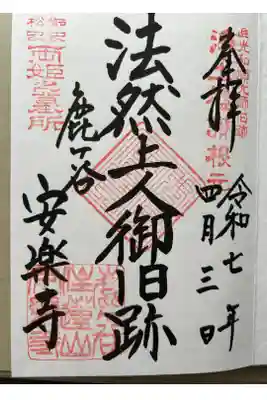 奉拝
令和七年
四月三日
法然上人御旧跡
鹿ヶ谷
安楽寺
両姫之墓所